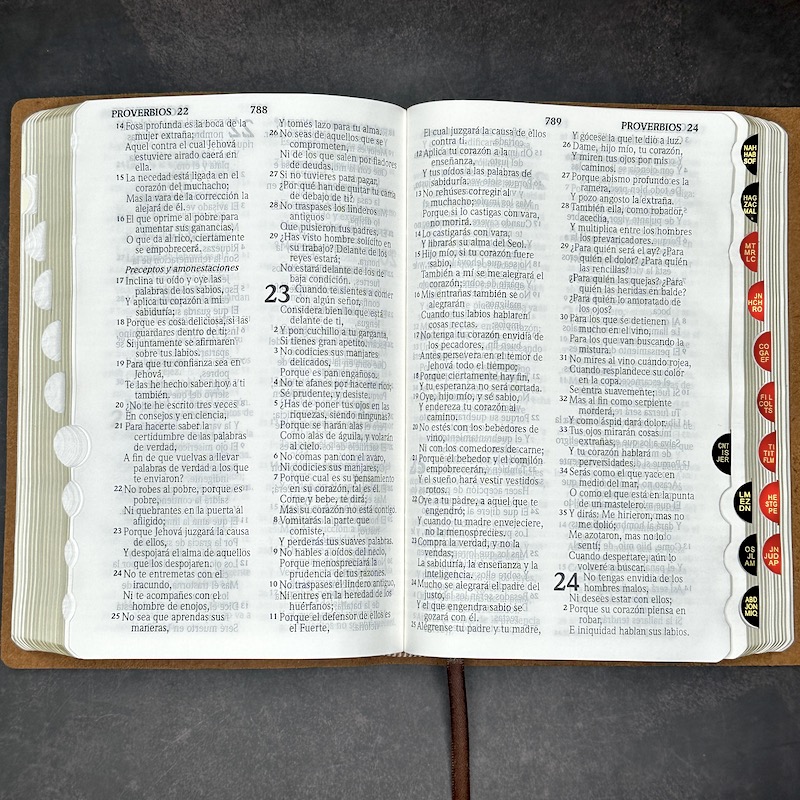 PROVERBIOS 22
788
14 Fosa profunda es la boca de la
mujer extraña;
Aquel contra el cual Jehová
estuviere airado caerá en
ella.
15 La necedad está ligada en el
corazón del muchacho;
Mas la vara de la corrección la
alejará de él.
16 El que oprime al pobre para
aumentar sus ganancias,
O que da al rico, ciertamente
se empobrecerá.
Preceptos y amonestaciones
17 Inclina tu oído y oye las
palabras de los sabios,
Y aplica tu corazón a mi
sabiduría;
18 Porque es cosa deliciosa, si las
guardares dentro de ti;
Si juntamente se afirmaren
sobre tus labios.
19 Para que tu confianza sea en
Jehová,
Te las he hecho saber hoy a ti
también.
20 ¿No te he escrito tres veces
En consejos y en ciencia,
21 Para hacerte saber la
certidumbre de las palabras
de verdad,
A fin de que vuelvas a llevar
palabras de verdad a los que
te enviaron?
22 No robes al pobre, porque es
pobre,
Ni quebrantes en la puerta al
afligido;
23 Porque Jehová juzgará la causa
de ellos,
Y despojará el alma de aquellos
que los despojaren.
24 No te entremetas con el
iracundo,
Ni te acompañes con el
hombre de enojos,
25 No sea que aprendas sus
maneras,
Y tomes lazo para tu alma.
26 No seas de aquellos que se
comprometen,
Ni de los que salen por fiadores
de deudas,
27 Si no tuvieres para pagar,
¿Por qué han de quitar tu cama
de debajo de ti?
28 No traspases los linderos
antiguos
Que pusieron tus padres.
29 ¿Has visto hombre solícito en
su trabajo? Delante de los
reyes estará;
No estará delante de los de
baja condición.
23 Cuando te sientes a comer
con algún señor,
Considera bien lo que está
delante de ti,
2 Y pon cuchillo a tu garganta,
Si tienes gran apetito.
3 No codicies sus manjares
delicados,
Porque es pan engañoso.
4 No te afanes por hacerte rico;
Sé prudente, y desiste.
5 ¿Has de poner tus ojos en las
riquezas, siendo ningunas?
Porque se harán alas
Como alas de águila, y volarán
al cielo.
6 No comas pan con el avaro,
Ni codicies sus manjares;
7 Porque cual es su pensamiento
en su corazón, tal es él.
Come y bebe, te dirá;
Mas su corazón no está contigo.
8 Vomitarás la parte que
comiste,
Y perderás tus suaves palabras.
9 No hables a oídos del necio,
Porque menospreciará la
prudencia de tus razones.
10 No traspases el lindero antiguo,
Ni entres en la heredad de los
huérfanos;
11 Porque el defensor de ellos es
el Fuerte,
789
PROVERBIOS 24
El cual juzgará la causa de ellos
contra ti.
12 Aplica tu corazón a la
enseñanza,
Y tus oídos a las palabras de
sabiduría.
13 No rehúses corregir al
muchacho;
Porque si lo castigas con vara,
no morirá.
14 Lo castigarás con vara,
Y librarás su alma del Seol.
15 Hijo mío, si tu corazón fuere
sabio,
También a mí se me alegrará el
corazón;
16 Mis entrañas también se
alegrarán
Cuando tus labios hablaren
cosas rectas.
17 No tenga tu corazón envidia de
los pecadores,
Antes persevera en el temor de
Jehová todo el tiempo;
18 Porque ciertamente hay fin,
Y tu esperanza no será cortada.
19 Oye, hijo mío, y sé sabio,
Y endereza tu corazón al
camino.
20 No estés con los bebedores de
vino,
Ni con los comedores de carne;
21 Porque el bebedor y el comilón
empobrecerán,
Y el sueño hará vestir vestidos
rotos.
22 Oye a tu padre, a aquel que te
engendró;
Y cuando tu madre envejeciere,
no la menosprecies.
23 Compra la verdad, y no la
vendas;
La sabiduría, la enseñanza y la
inteligencia.
24 Mucho se alegrará el padre del
justo,
Y el que engendra sabio se
gozará con él.
25 Alégrense tu padre y tu madre,
Y gócese la que te dio a luz.
26 Dame, hijo mío, tu corazón,
Y miren tus ojos por mis
caminos.
27 Porque abismo profundo es la
ramera,
Y pozo angosto la extraña.
28 También ella, como robador,
acecha,
Y multiplica entre los hombres
los prevaricadores.
29 ¿Para quién será el ay? ¿Para
quién el dolor? ¿Para quién
las rencillas?
¿Para quién las quejas? ¿Para
quién las heridas en balde?
¿Para quién lo amoratado de
los ojos?
30 Para los que se detienen
mucho en el vino,
Para los que van buscando la
mistura.
31 No mires al vino cuando rojea,
Cuando resplandece su color
en la copa.
Se entra suavemente;
32 Mas al fin como serpiente
morderá,
Y como áspid dará dolor.
33 Tus ojos mirarán cosas
extrañas,
Y tu corazón hablará
perversidades.
34 Serás como el que yace en
medio del mar,
O como el que está en la punta
de un mastelero.
35 Y dirás: Me hirieron, mas no
me dolió;
Me azotaron, mas no lo
sentí;
Cuando despertare, aún lo
volveré a buscar.
24 No tengas envidia de los
hombres malos,
Ni desees estar con ellos;
2 Porque su corazón piensa en
robar,
E iniquidad hablan sus labios.
NAH
HAB
SOF
HAG
ZAC
MAL
MT
MR
LC
JN
HCH
RO
CO
GA
EF
FIL
COL
TS
CNT
IS
JER
TI
TIT
FLM
LM
EZ
DN
HE
STG
PE
OS
JL
AM
JN
JUD
AP
ABD
JON
MIQ